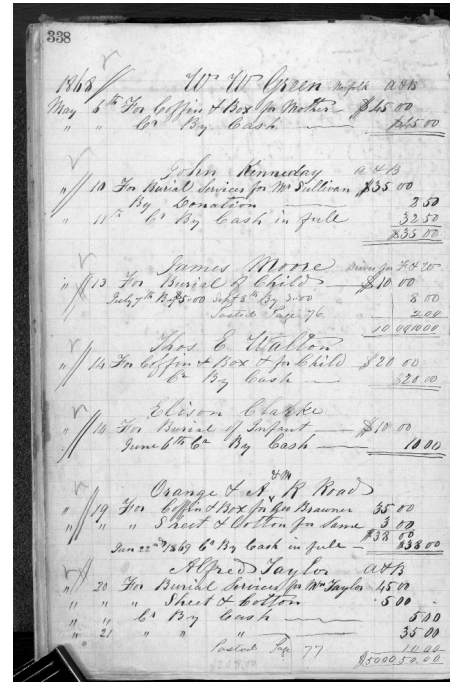 338
1868 W W Green Norfolk A & B
May 6th For Coffin & Box for Mother $45 00
" " Cr By Cash $45 00
John Kinneday A & B
" 10 For Burial Services for Mr Sullivan $35 00
By Donation 2 50
" 11th Cr By Cash in full 32 50
$35 00
James Moore Driver for
" 13 For Burial of Child $10 00
July 7th By $5.00 Sept 8th By 3.00 8 00
Posted Page 76 2 00
10 00 10 00
Thos E Walton
" 14 For Coffin & Box & for Child $20 00
Cr By Cash $20 00
Elison Clarke
" 14 For Burial of Infant $10 00
June 6th Cr By Cash 10 00
Orange & A & M R Road
" 19 For Coffin & Box for Geo Brawner 35 00
" " " Sheet & Cotton for Same 3 00
$38 00
Jan 22nd 1869 Cr By Cash in full $38 00
Alfred Taylor A & B
" 20 For Burial Services for Wm Taylor 45 00
" " " Sheet & Cotton 5 00
" " Cr By Cash 5 00
" 21 " " " 35 00
Posted Page 77 10 00
$50 00 50 00